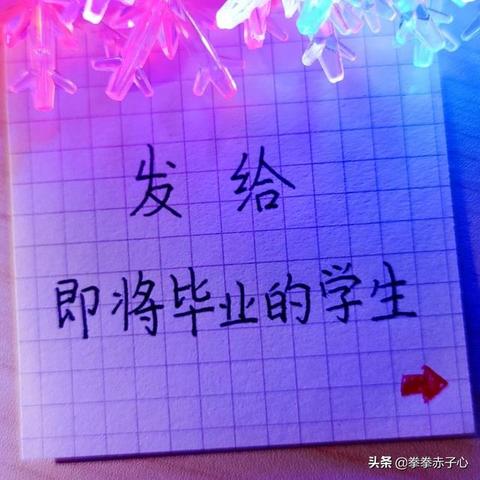 发给
即将毕业的学生
头条 @拳拳赤子心